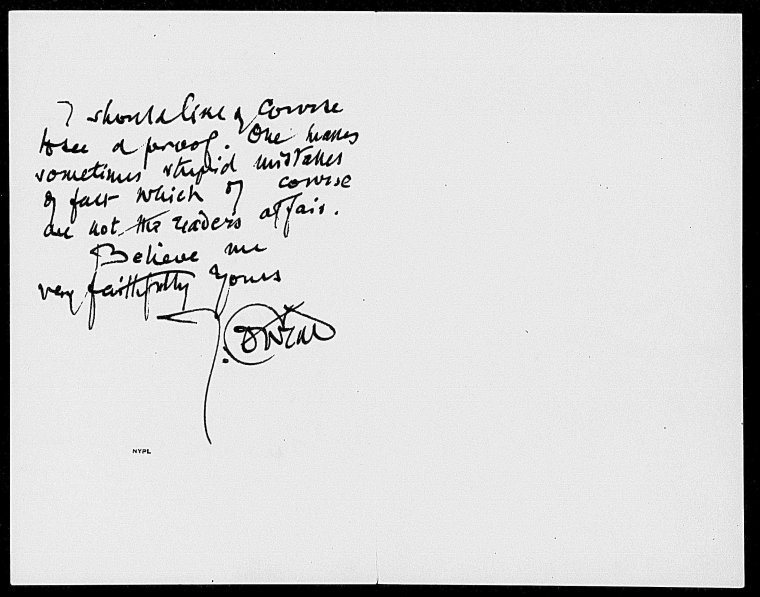 I should like of Course
to see a proof. One makes
sometimes stupid mistakes
of fact which of course
are not the readers affair.
Believe me
very faithfully Yours
J. Conrad
NYPL